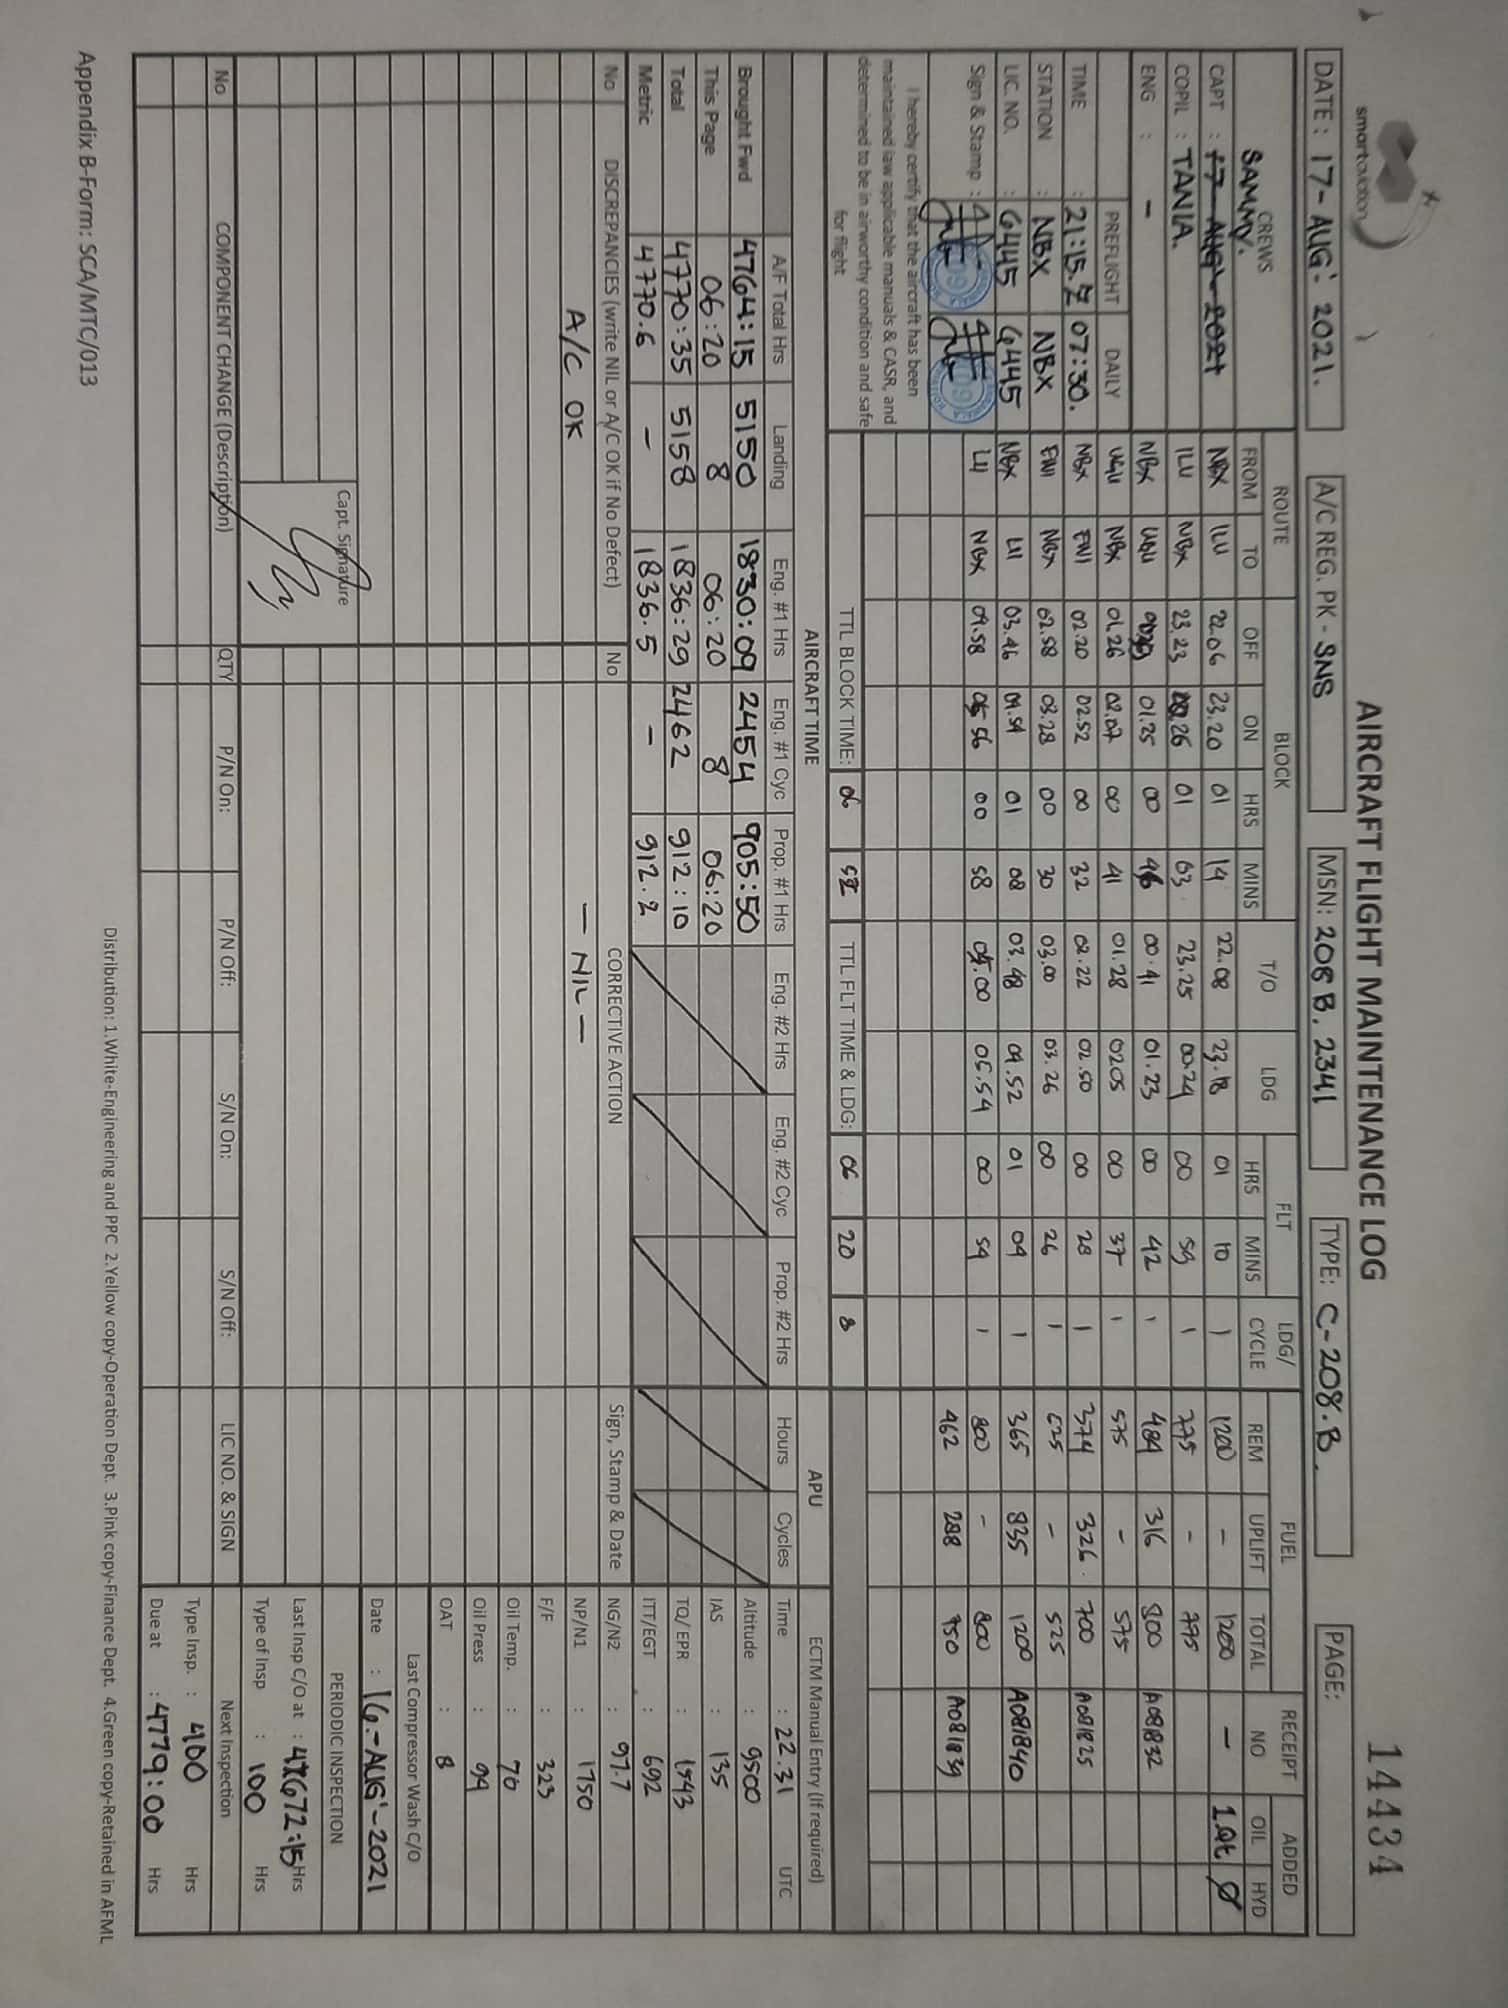 smartaviation
AIRCRAFT FLIGHT MAINTENANCE LOG
14434
DATE : 17-AUG' 2021.
A/C REG. PK - SNS
MSN: 208 B. 2341
TYPE: C-208.B.
PAGE:
CREWS
SAMMY.
CAPT : 17-AUG'-2021
COPIL : TANIA.
ENG : -
PREFLIGHT DAILY
TIME : 21:15.Z 07:30.
STATION : NBX NBX
LIC. NO. : 6445 6445
Sign & Stamp :
I hereby certify that the aircraft has been
maintained iaw applicable manuals & CASR, and
determined to be in airworthy condition and safe
for flight
ROUTE BLOCK T/O LDG FLT LDG/ CYCLE FUEL RECEIPT NO ADDED
FROM TO OFF ON HRS MINS HRS MINS REM UPLIFT TOTAL OIL HYD
NBX ILU 22.06 23.20 01 14 22.08 23.18 01 10 1 1200 - 1200 - 1Qt Ø
ILU NBX 23.23 00.26 01 03 23.25 00.24 00 59 1 775 - 775
NBX UGU 01.25 00 46 00.41 01.23 00 42 1 484 316 800 A081832
UGU NBX 01.26 02.07 00 41 01.28 0205 00 37 1 575 - 575
NBX EWI 02.20 02.52 00 32 02.22 02.50 00 28 1 374 326 700 A081825
EWI NBX 02.58 03.28 00 30 03.00 03.26 00 26 1 525 - 525
NBX LII 03.46 04.54 01 08 03.48 04.52 01 04 1 365 835 1200 A081840
LII NBX 04.58 05 56 00 58 05.00 05.54 00 54 1 800 - 800
462 288 750 A081839
TTL BLOCK TIME: 06 52 TTL FLT TIME & LDG: 06 20 8
AIRCRAFT TIME
APU
ECTM Manual Entry (If required)
A/F Total Hrs Landing Eng. #1 Hrs Eng. #1 Cyc Prop. #1 Hrs Eng. #2 Hrs Eng. #2 Cyc Prop. #2 Hrs Hours Cycles
Brought Fwd 4764:15 5150 1830:09 2454 905:50
This Page 06:20 8 06:20 8 06:20
Total 4770:35 5158 1836:29 2462 912:10
Metric 4770.6 - 1836.5 - 912.2
Time : 22.31 UTC
Altitude : 9500
IAS : 135
TQ/ EPR : 1543
ITT/EGT : 692
NG/N2 : 97.7
NP/N1 : 1750
F/F : 323
Oil Temp. : 76
Oil Press : 94
OAT : 8
No DISCREPANCIES (write NIL or A/C OK if No Defect)
No CORRECTIVE ACTION
Sign, Stamp & Date
A/C OK
— NIL —
Capt. Signature
Last Compressor Wash C/O
Date : 16-AUG'-2021
PERIODIC INSPECTION
Last Insp C/O at : 4672:15 Hrs
Type of Insp : 100 Hrs
Next Inspection
Type Insp. : 400 Hrs
Due at : 4779:00 Hrs
No COMPONENT CHANGE (Description) QTY P/N On: P/N Off: S/N On: S/N Off: LIC NO. & SIGN
Appendix B-Form: SCA/MTC/013
Distribution: 1.White-Engineering and PPC 2.Yellow copy-Operation Dept. 3.Pink copy-Finance Dept. 4.Green copy-Retained in AFML